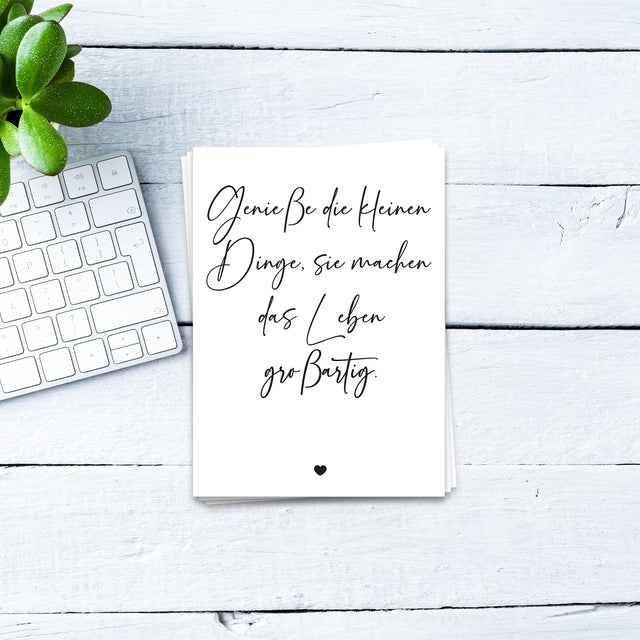 Genieße die kleinen
Dinge, sie machen
das Leben
großartig.